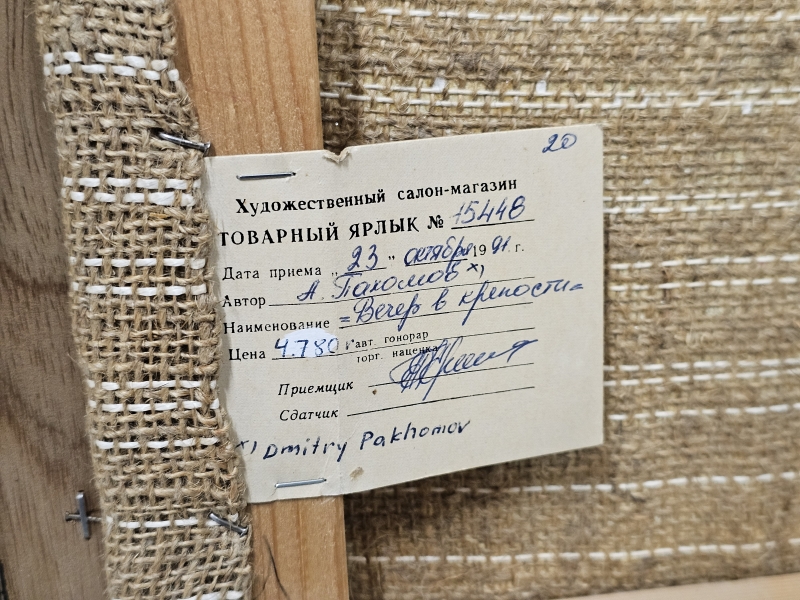 20
Художественный салон-магазин
ТОВАРНЫЙ ЯРЛЫК № 15448
Дата приема „ 23 " октября 19 91 г.
Автор А. Пахомов х)
Наименование =Вечер в крепости=
Цена 4.780 авт. гонорар
торг. наценка
Приемщик
Сдатчик
х) Dmitry Pakhomov